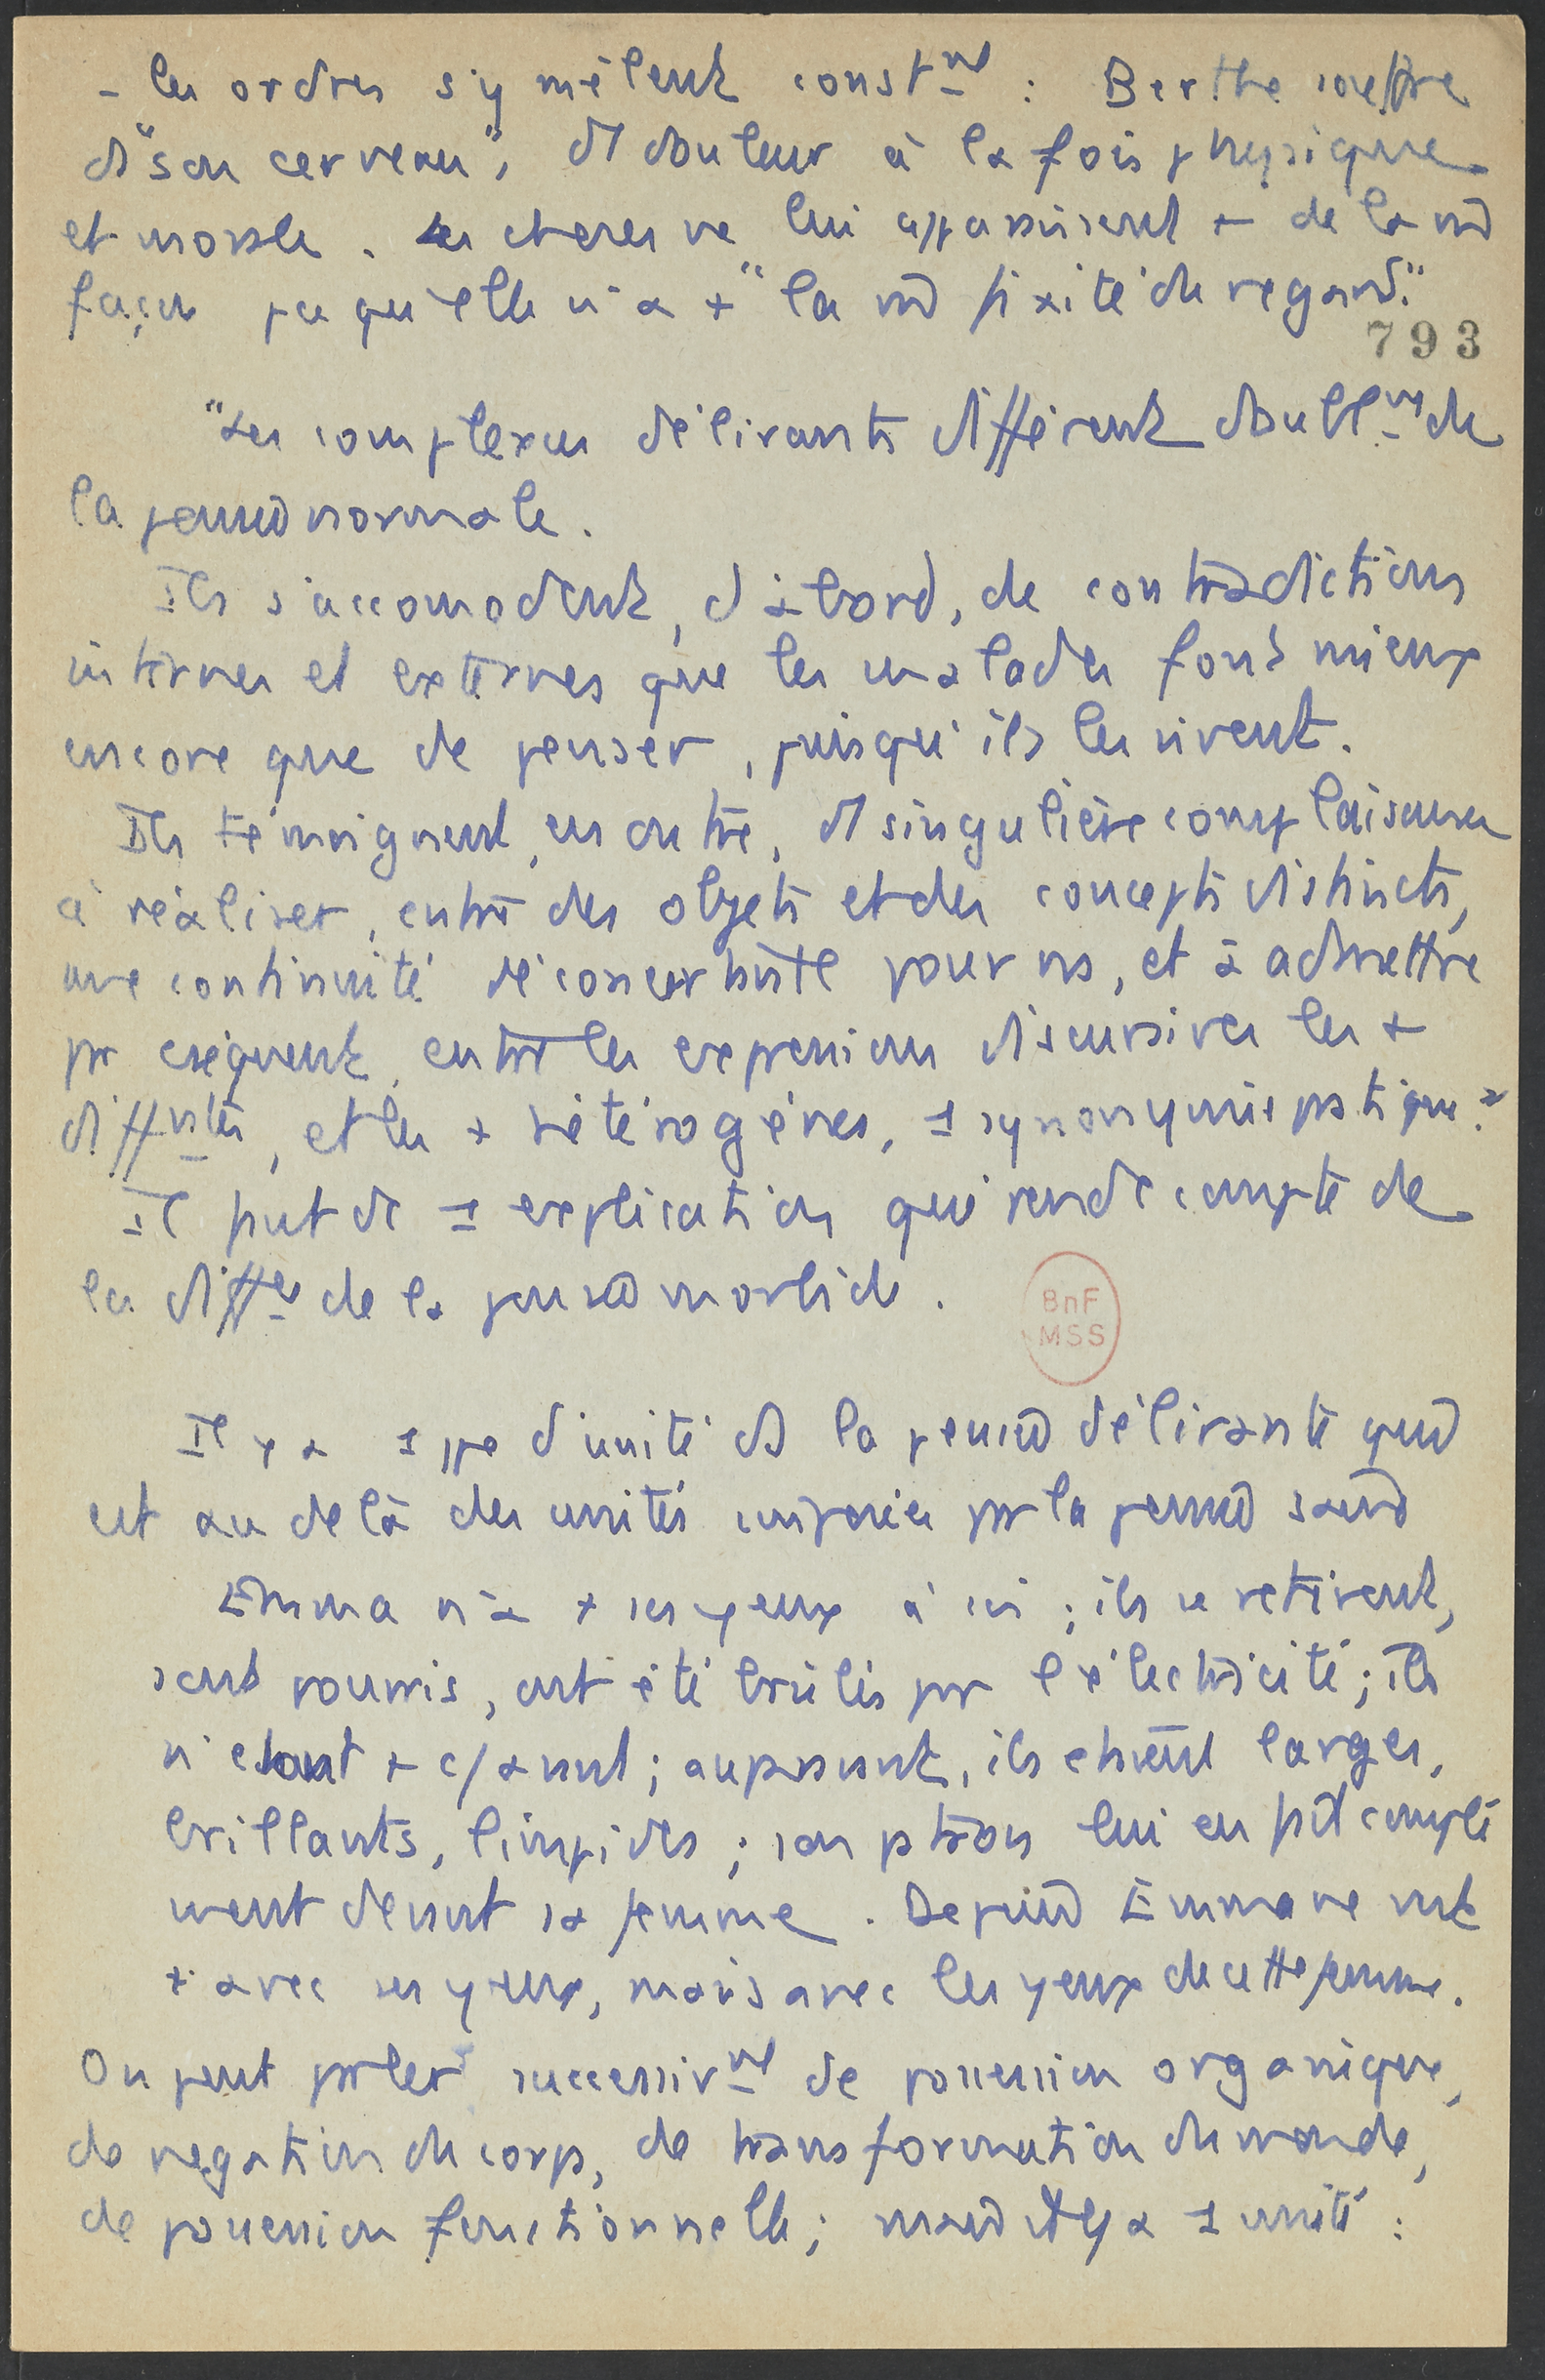 - les ordres s'y mêlent const^mt : Berthe souffre
ds "son cerveau", d1 douleur à la fois physique
et morale. Les choses ne lui apparaissent + de la m̂
façon pcq qu'elle n'a + "la m̂ fixité du regard."
793
"Les complexes délirants diffèrent doubl^mt de
la pensée normale.
Ils s'accomodent, d'abord, de contradictions
internes et externes que les malades font mieux
encore que de penser, puisqu'ils les vivent.
Ils témoignent, en outre, d1 singulière complaisance
à réaliser, entre des objets et des concepts distincts,
une continuité déconcertante pour ns, et à admettre
pr cséquent, entre les expressions discursives les +
diff^ntes, et les + hétérogènes, 1 synonymie pratique."
Il faut dc 1 explication qui rende compte de
la diff^ce de la pensée morbide.
BnF
MSS
Il y a 1 ppe d'unité ds la pensée délirante qui
est au delà des unités imposées par la pensée saine
Emma n'a + ses yeux à soi ; ils se retirent,
sont pourris, ont été brûlés par l'électricité ; ils
n'étaient + c/ avant ; auparavant, ils étaient larges,
brillants, limpides ; son patron lui en fit compli
ment devant sa femme. Depuis Emma ne voit
+ avec ses yeux, mais avec les yeux de cette femme.
On peut parler successiv^mt de possession organique,
de négation du corps, de transformation du monde,
de possession fonctionnelle ; mais il y a 1 unité :